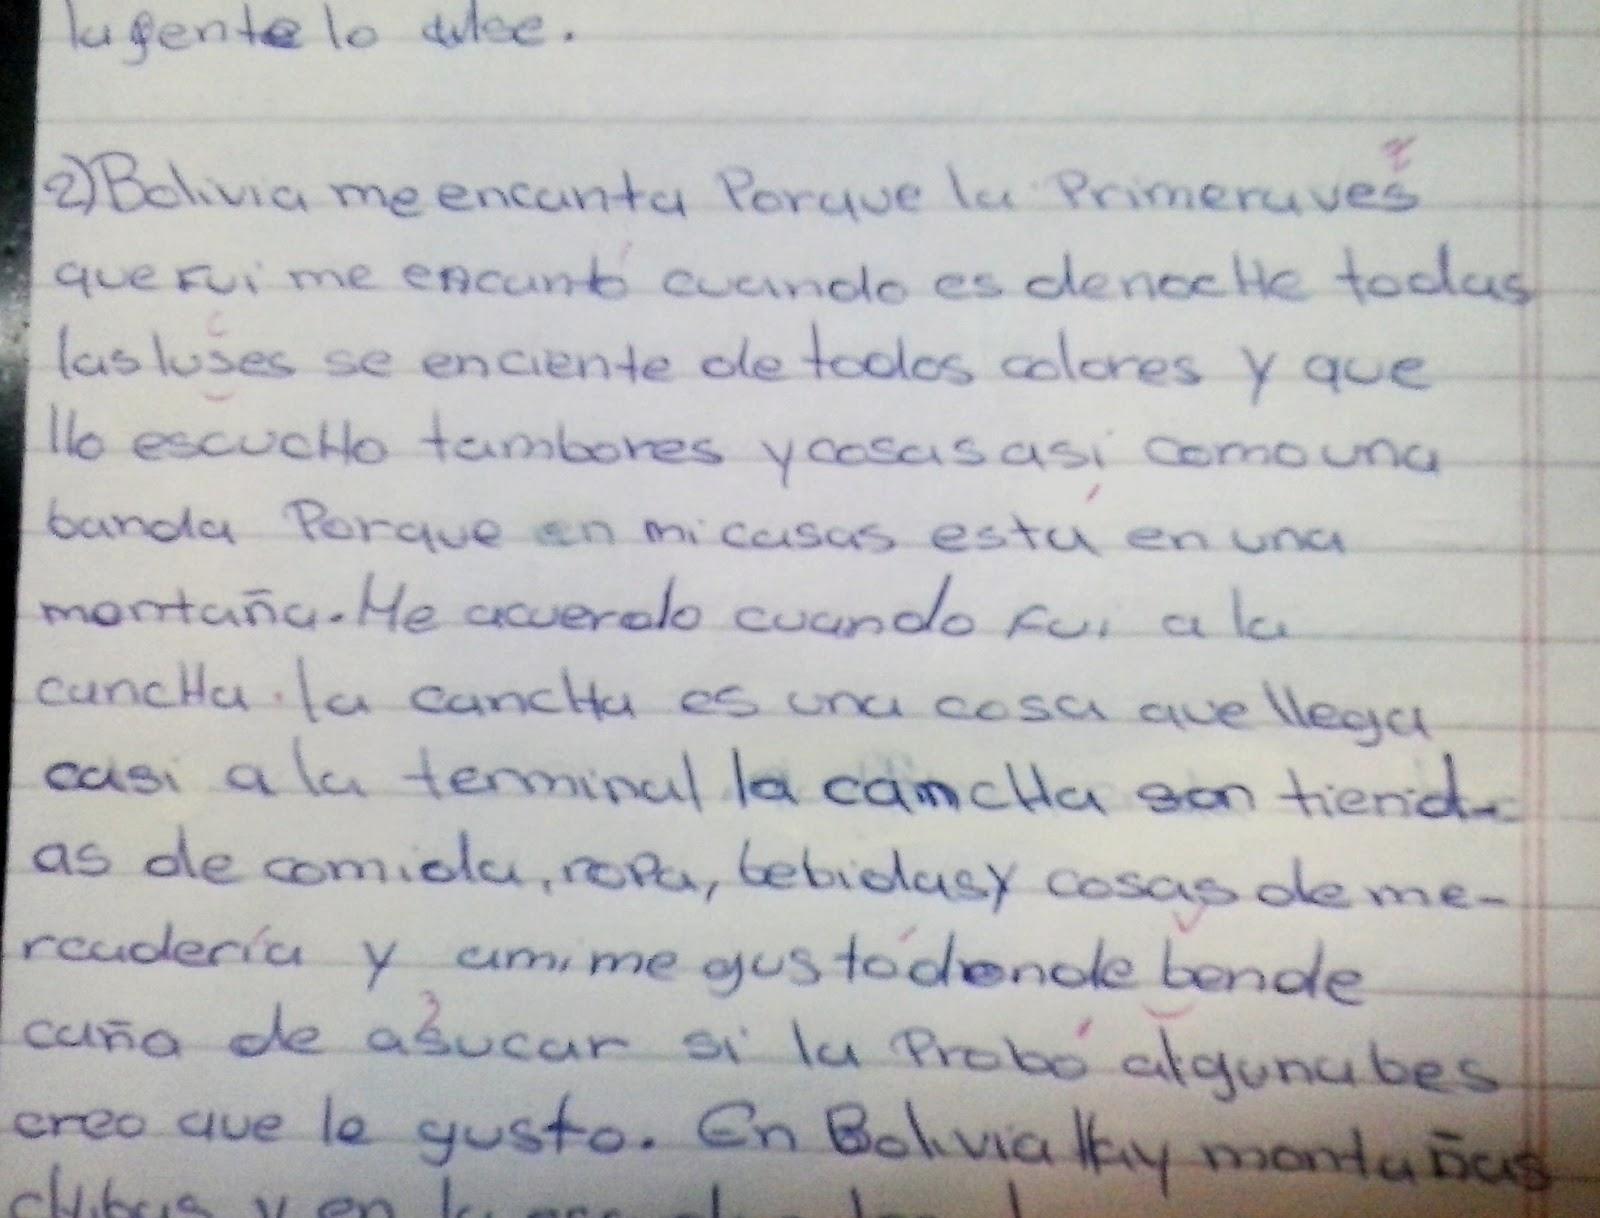 la gente lo dulce.
2) Bolivia me encanta Porque la Primera ves
que Fui me encantó cuando es de nocHe todas
las luses se enciente de todos colores y que
llo escucHo tambores y cosas asi como una
banda Porque en mi casas está en una
montaña. Me acuerdo cuando Fui a la
cancHa. la cancHa es una cosa que llega
casi a la terminal la cancHa son tiend-
as de comida, ropa, bebidas y cosas de me-
rcadería y ami me gustó donde bende
caña de asucar si la Probó alguna bes
creo que le gusto. En Bolivia Hay montañas
y en la